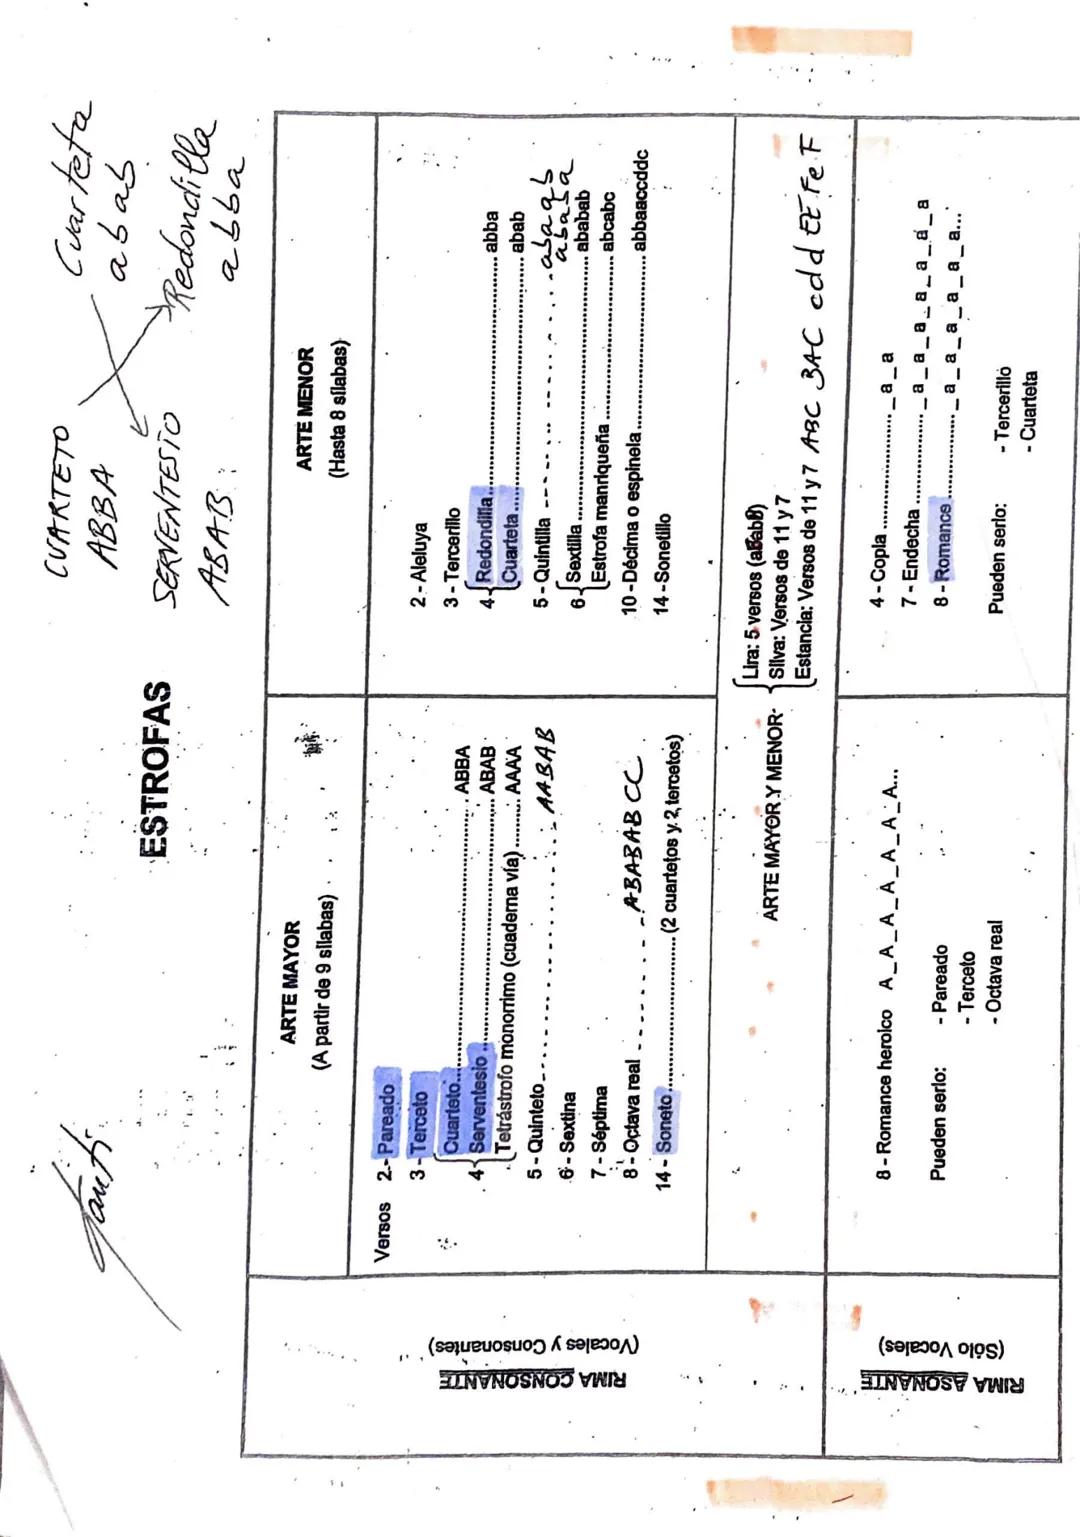 CUARTETO Cuarteta
ABBA abab
SERVENTESIO Redondilla
ABAB abba
ESTROFAS
ARTE MAYOR
(A partir de 9 sílabas)
ARTE MENOR
(Hasta 8 sílabas)
RIMA CONSONANTE
(Vocales y Consonantes)
Versos 2.- Pareado
3 - Terceto
Cuarteto.......... ABBA
4 Serventesio .......... ABAB
Tetrástrofo monorrimo (cuaderna vía) .......... AAAA
5 - Quinteto .......... AABAB
6 - Sextina
7 - Séptima
8 - Octava real .......... ABABAB CC
14 - Soneto .......... (2 cuartetos y 2 tercetos)
2 - Aleluya
3 - Tercerillo
4 Redondilla .......... abba
Cuarteta .......... abab
5 - Quintilla ..........
ababa
6 Sextilla .......... ababab
Estrofa manriqueña .......... abcabc
10 - Décima o espinela .......... abbaaccddc
14 - Sonetillo
ARTE MAYOR Y MENOR
Lira: 5 versos
Silva: Versos de 11 y 7
Estancia: Versos de 11 y 7 ABC BAC cdd EE Fe F
RIMA ASONANTE
(Sólo Vocales)
8 - Romance heroico A_A_A_A_A_A_A...
Pueden serlo: - Pareado
- Terceto
- Octava real
4 - Copla .......... _a_a
7 - Endecha .......... _a_a_a_a_a_a
8 - Romance .......... _a_a_a_a_a_a...
Pueden serlo: - Tercerillo
- Cuarteta